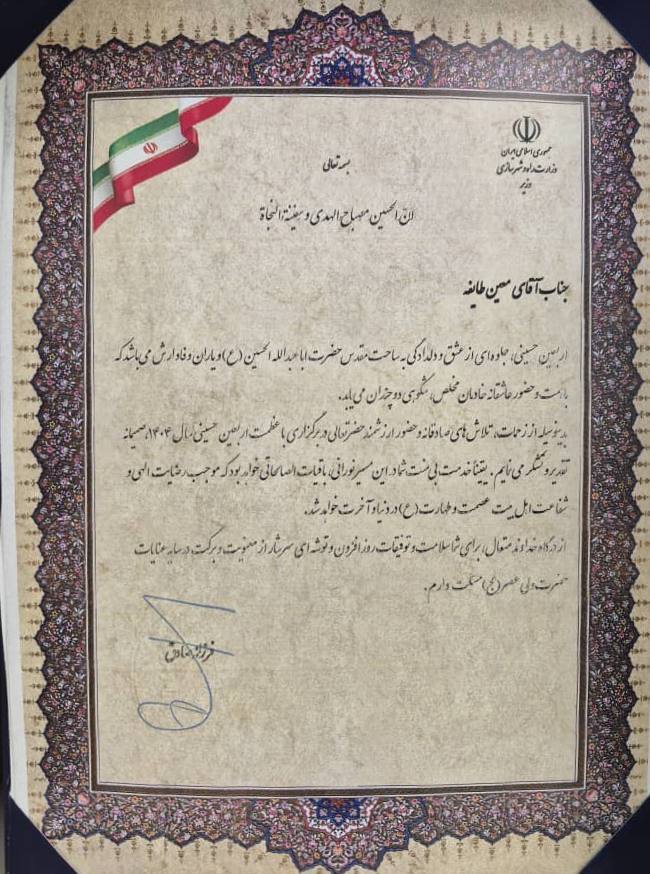 جمهوری اسلامی ایران
وزارت راه و شهرسازی
وزیر
بسمه تعالی
ان الحسین مصباح الهدی و سفینة النجاة
جناب آقای معین طایفه
اربعین حسینی، جلوه‌ای از عشق و دلدادگی به ساحت مقدس حضرت اباعبدالله الحسین (ع) و یاران وفادارش می‌باشد که
با همت و حضور عاشقانه خادمان مخلص، شکوهی دوچندان می‌یابد.
بدینوسیله از زحمات، تلاش‌های صادقانه و حضور ارزشمند حضرتعالی در برگزاری با عظمت اربعین حسینی سال ۱۴۰۴، صمیمانه
تقدیر و تشکر می‌نمایم. یقیناً خدمت بی‌منت شما در این مسیر نورانی، باقیات الصالحاتی خواهد بود که موجب رضایت الهی و
شفاعت اهل بیت عصمت و طهارت (ع) در دنیا و آخرت خواهد شد.
از درگاه خداوند متعال، برای شما سلامت و توفیقات روزافزون و توشه‌ای سرشار از معنویت و برکت، در سایه عنایات
حضرت ولی عصر (عج) مسئلت دارم.
فرزانه صادق